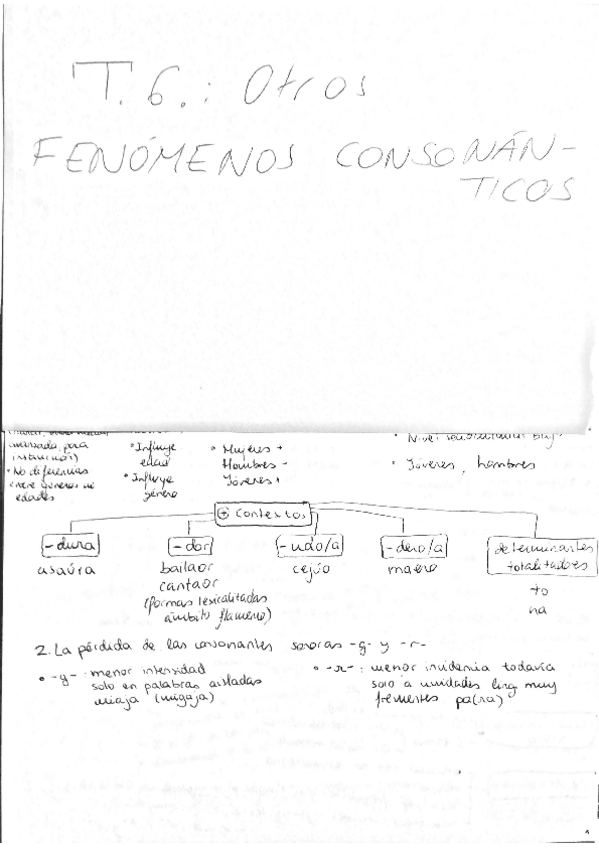 T.6.: Otros
FENÓMENOS CONSONÁN-
TICOS
marcada para
instrucción)
• No diferencias
entre géneros ni
edades
• Influye
edad
• Influye
género
• Mujeres +
Hombres -
Jóvenes +
• Jóvenes, hombres
⊕ contextos
-dura
asaúra
-dor
bailaor
cantaor
(formas lexicalizadas
ámbito flamenco)
-udo/a
cejúo
-dero/a
maero
determinantes
totalizadores
to
na
2. La pérdida de las consonantes sonoras -g- y -r-
• -g- : menor intensidad
solo en palabras aisladas
miaja (migaja)
• -r- : menor incidencia todavía
solo a unidades ling muy
frecuentes pa(ra)